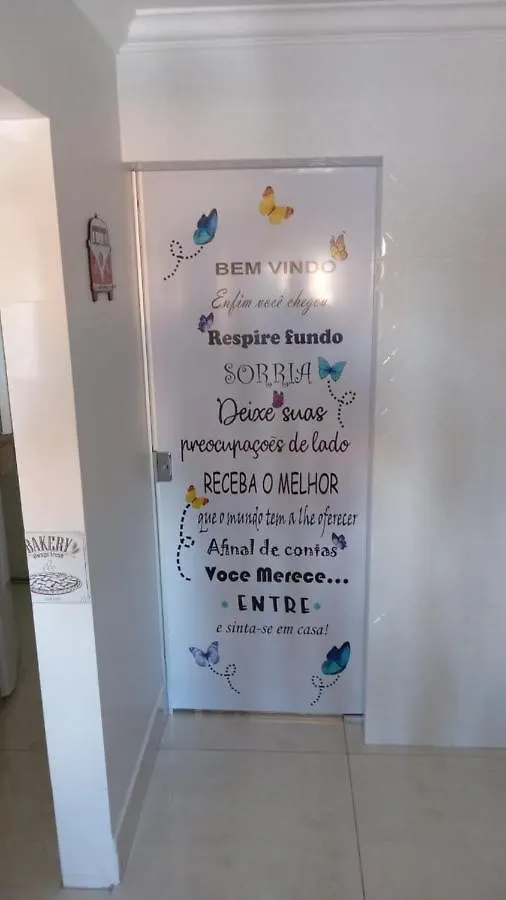 BEM VINDO
Enfim você chegou
Respire fundo
SORRIA
Deixe suas
preocupações de lado
RECEBA O MELHOR
que o mundo tem a lhe oferecer
Afinal de contas
Voce Merece...
• ENTRE •
e sinta-se em casa!
BAKERY